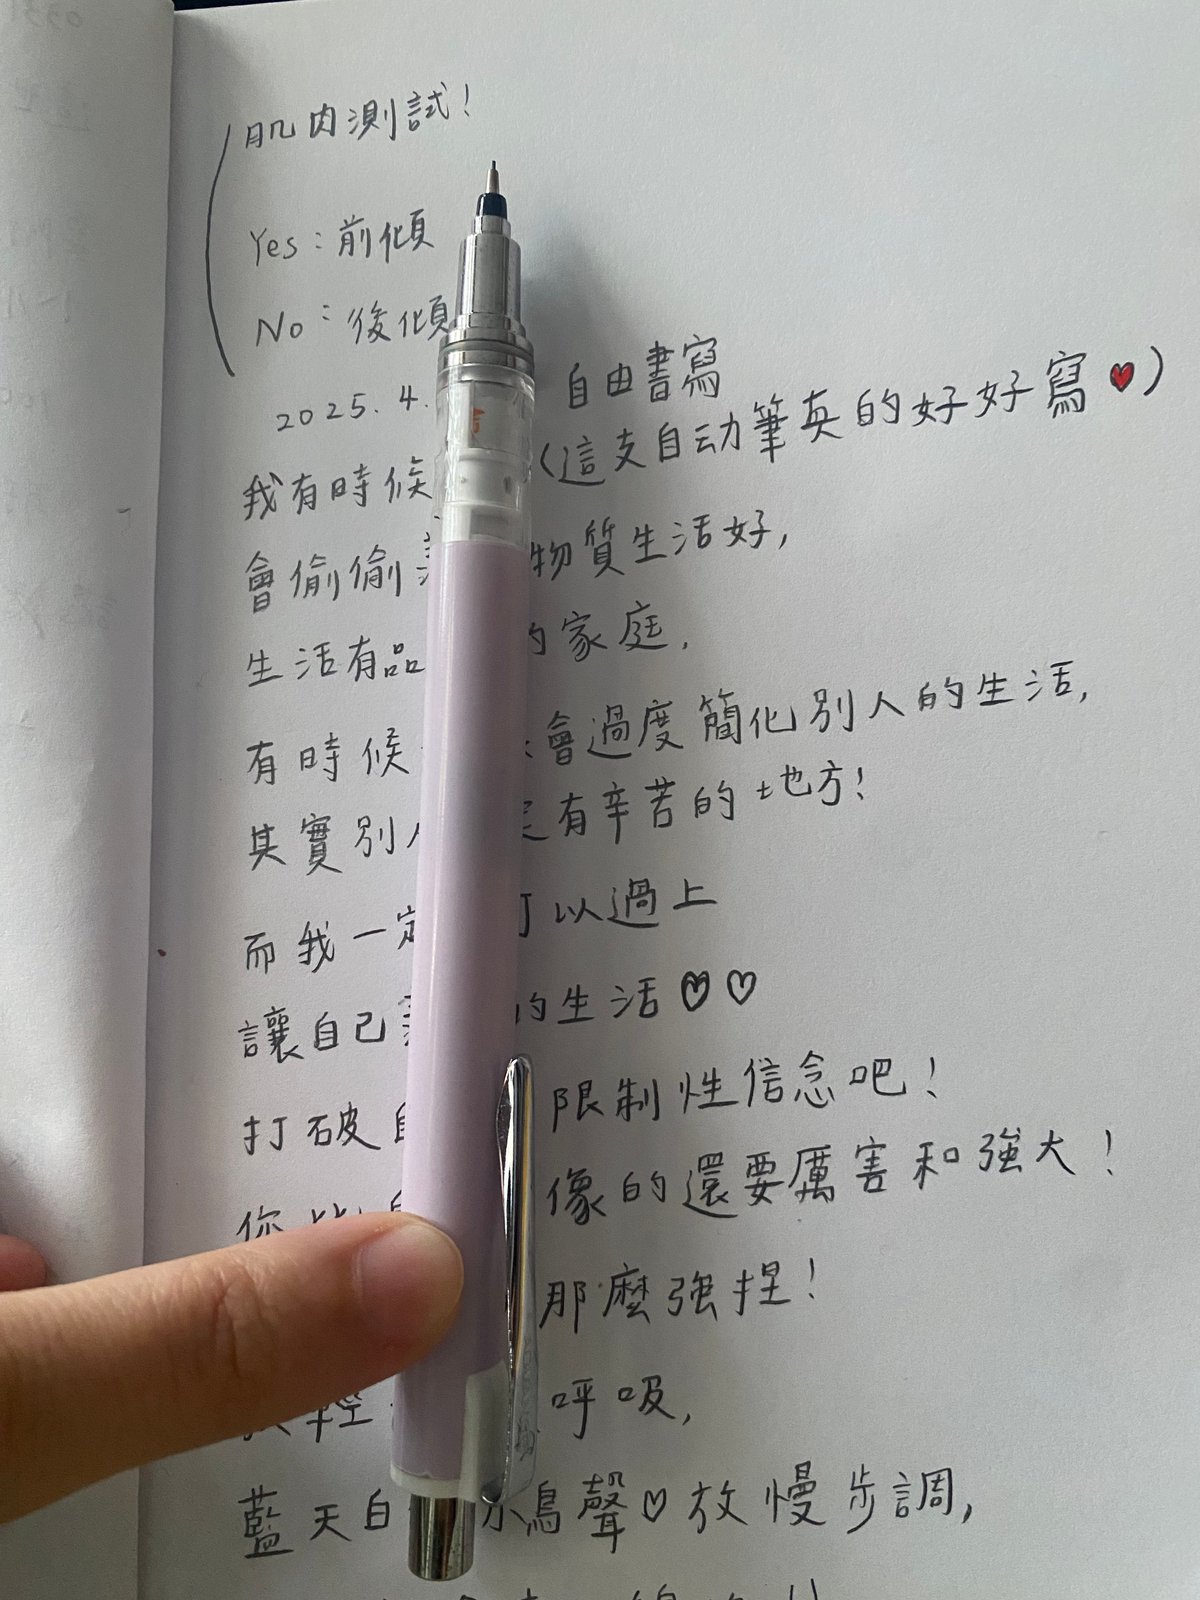 肌肉測試!
Yes:前傾
No:後傾
2025.4. 自由書寫
(這支自动筆真的好好寫♥)
我有時候
會偷偷 物質生活好,
生活有品 的家庭,
有時候 會過度簡化別人的生活,
其實別人 定有辛苦的地方!
而我一定 可以過上
讓自己 的生活♡♡
打破自 限制性信念吧!
你比自 像的還要厲害和強大!
那麼強捏!
輕 呼吸,
藍天白 鳥聲♡放慢步調,